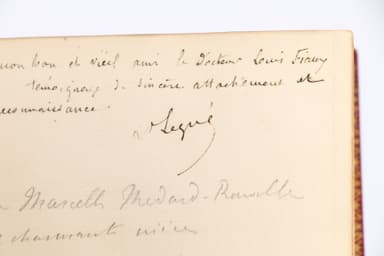 mon bon et vieil ami le Docteur Louis Fleury
témoignage de sincère attachement et
reconnaissance.
Dr Legué
Marcelle Medard-
charmante nièce